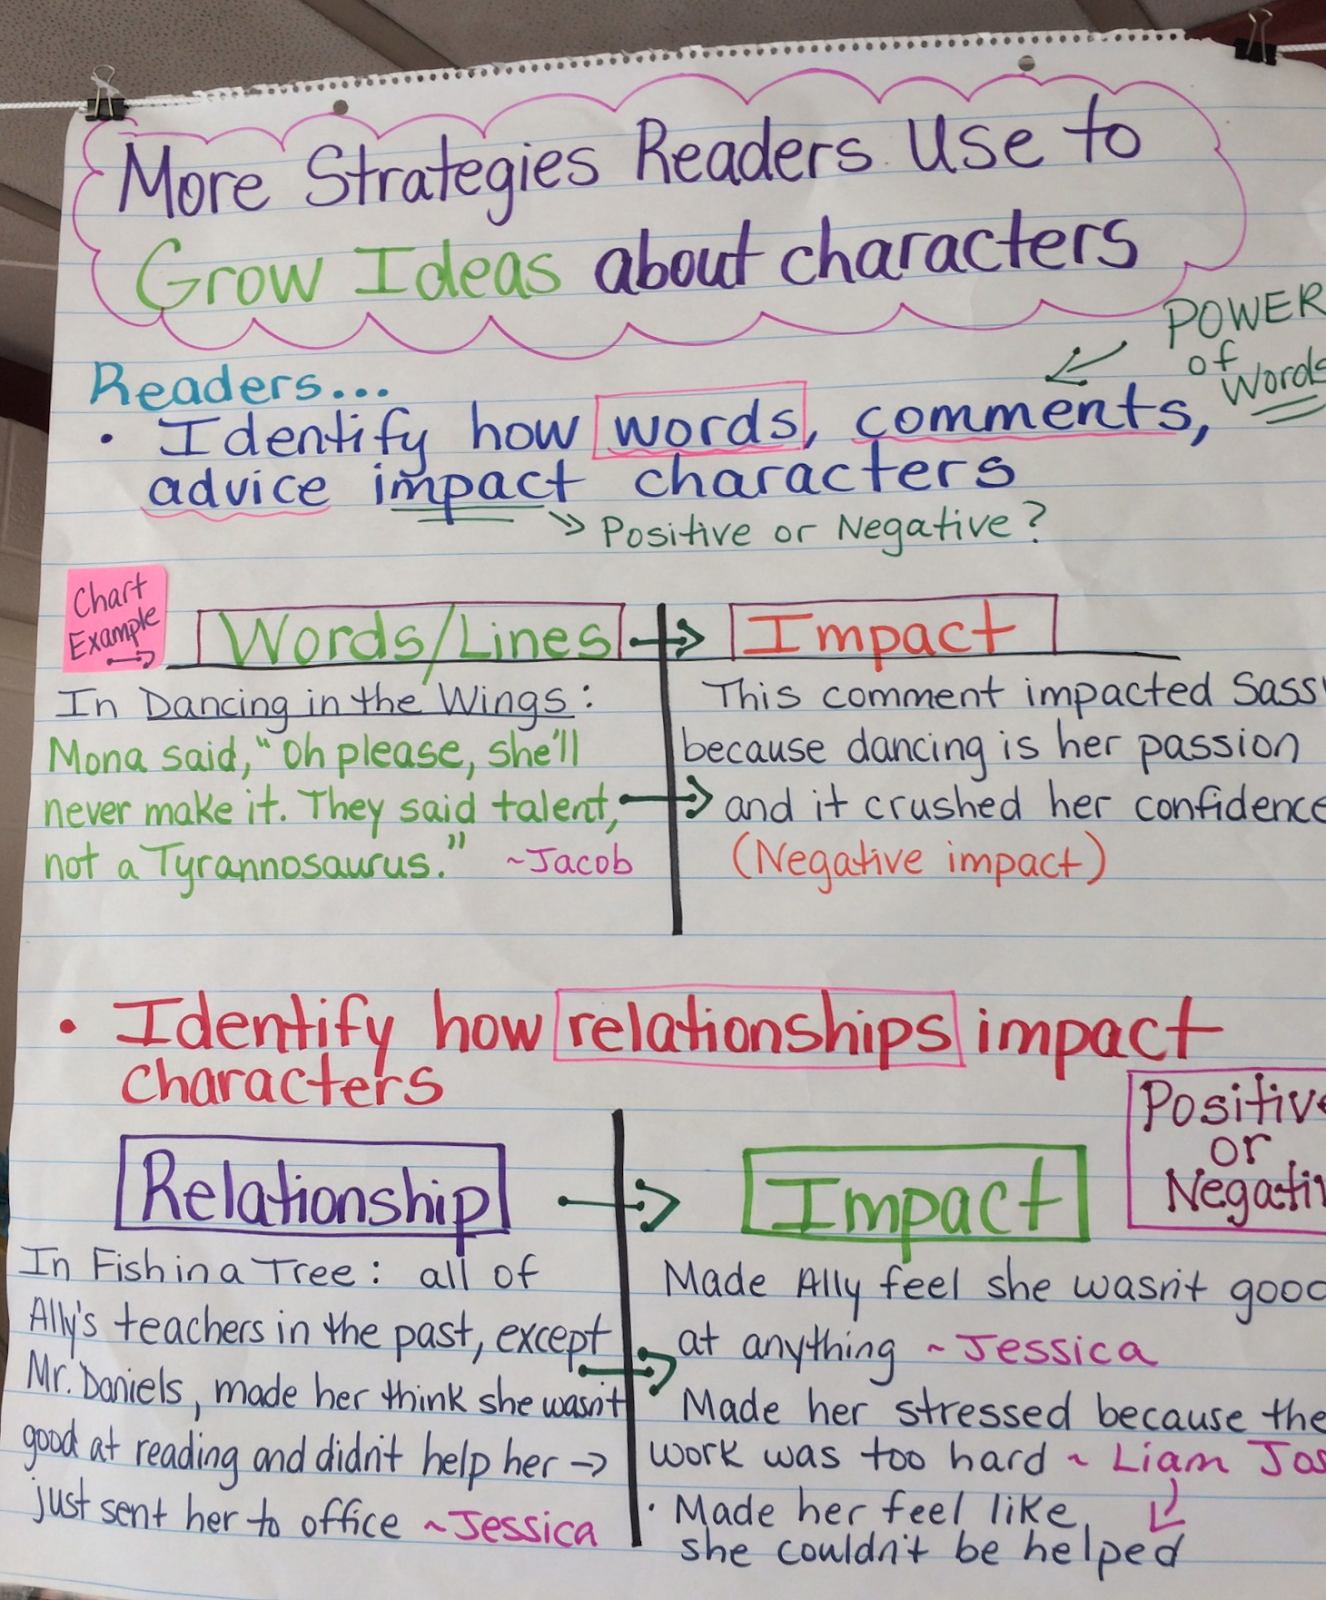 More Strategies Readers Use to
Grow Ideas about characters
POWER
of
Words
Readers...
• Identify how words, comments,
advice impact characters
Positive or Negative?
Chart
Example
Words/Lines
Impact
In Dancing in the Wings:
Mona said, "Oh please, she'll
never make it. They said talent,
not a Tyrannosaurus." ~Jacob
This comment impacted
because dancing is her passion
and it crushed her confidence
(Negative impact)
• Identify how relationships impact
characters
Positive
or
Relationship
Impact
In Fish in a Tree: all of
Ally's teachers in the past, except
Mr. Daniels, made her think she wasn't
good at reading and didn't help her →
just sent her to office ~Jessica
Made Ally feel she wasn't good
at anything ~Jessica
Made her stressed because the
work was too hard ~ Liam
• Made her feel like
she couldn't be helped